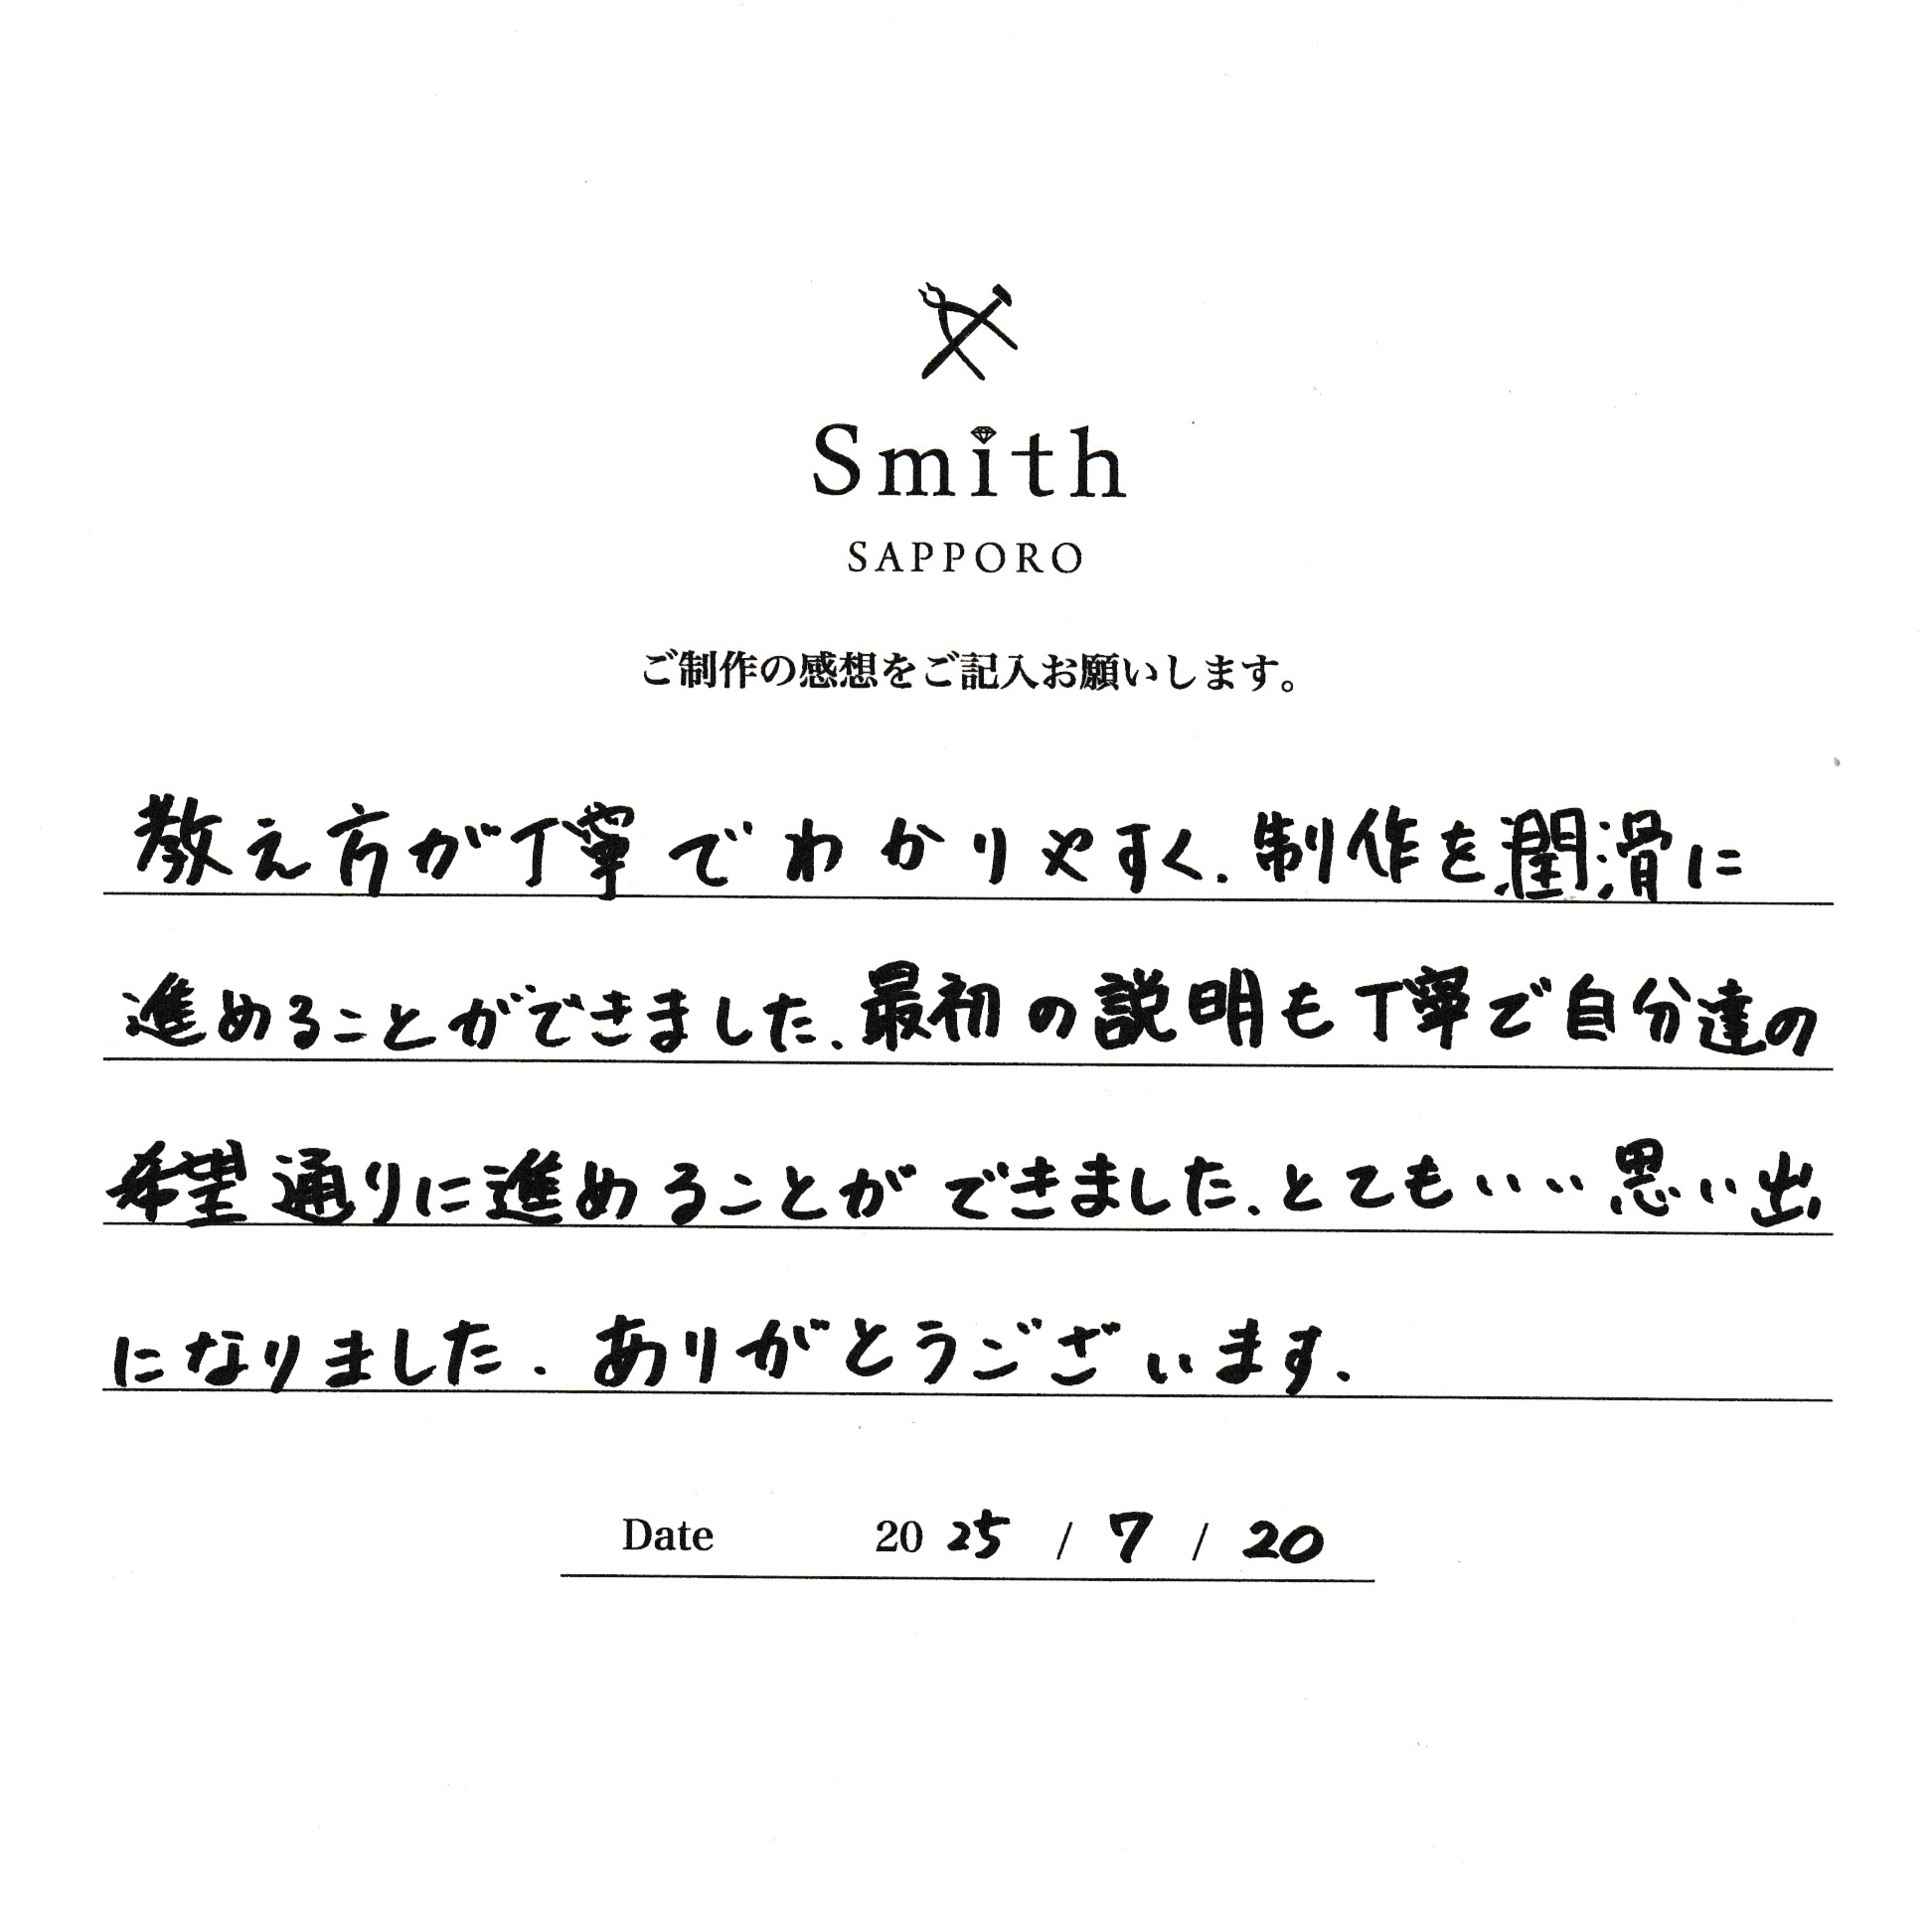 Smith
SAPPORO
ご制作の感想をご記入お願いします。
教え方が丁寧でわかりやすく、制作を潤滑に
進めることができました、最初の説明も丁寧で自分達の
希望通りに進めることができました、とてもいい思い出
になりました、ありがとうございます、
Date 2025 / 7 / 20